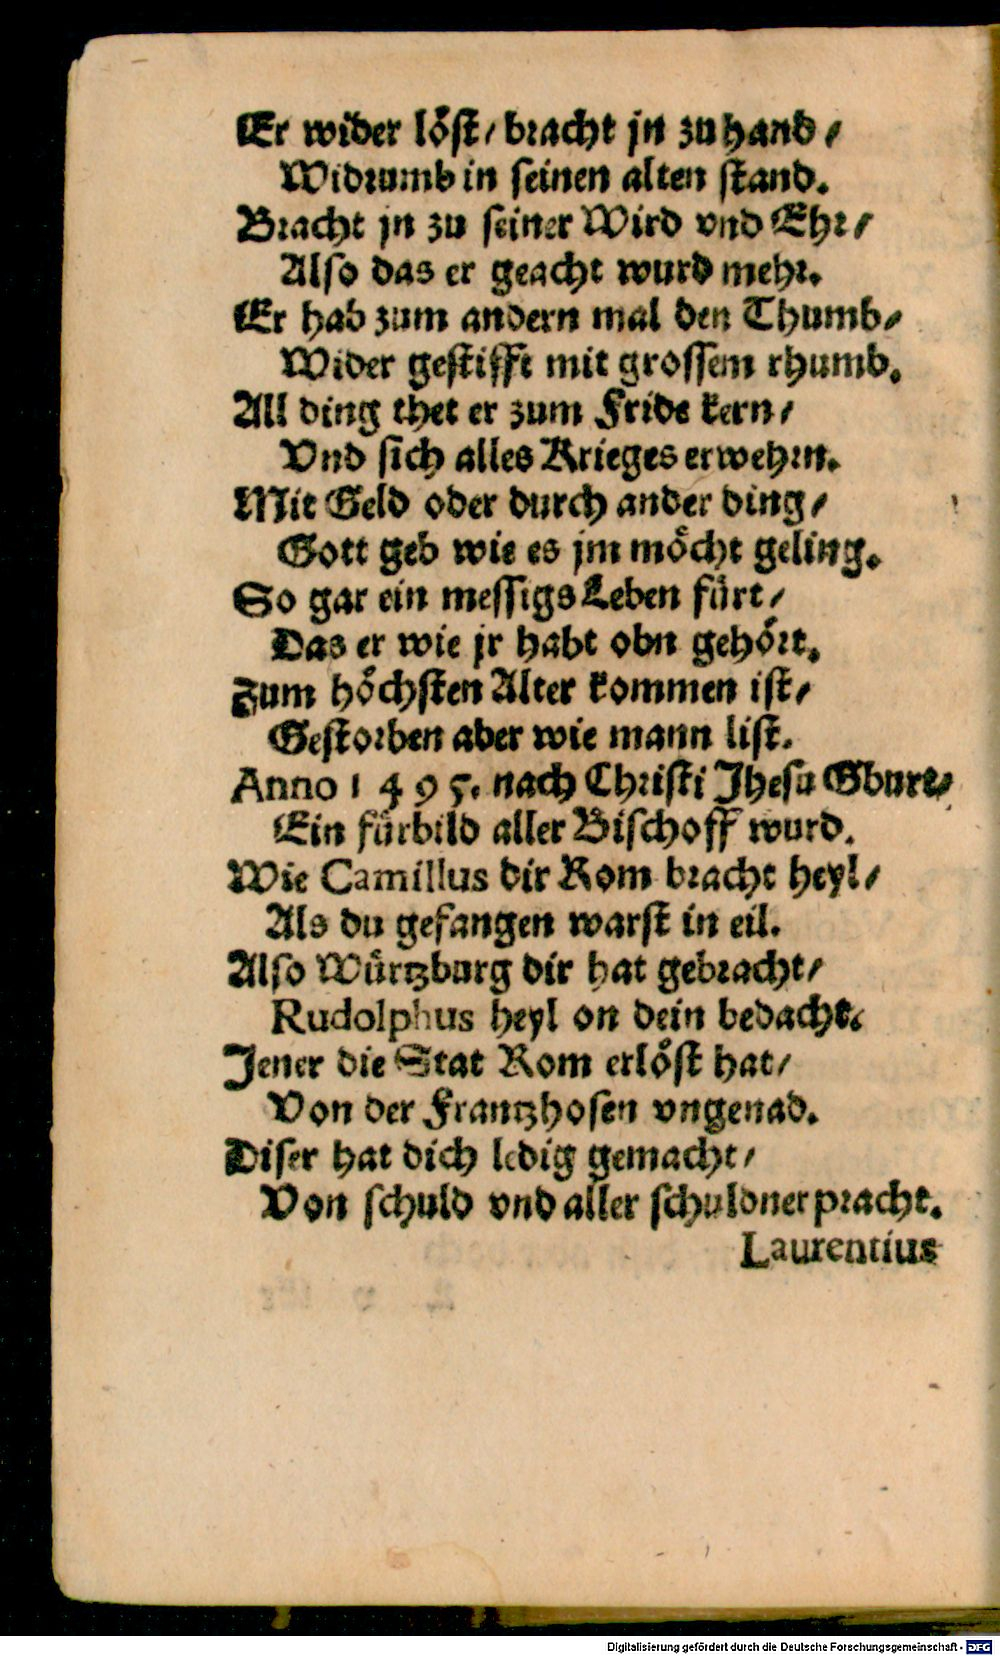 Er wider löst/ bracht jn zu hand/
Widrumb in seinen alten stand.
Bracht jn zu seiner Wird vnd Ehr/
Also das er geacht wurd mehr.
Er hab zum andern mal den Thumb/
Wider gestifft mit grossem rhumb.
All ding thet er zum Fride kern/
Vnd sich alles Krieges erwehrn.
Mit Geld oder durch ander ding/
Gott geb wie es jm möcht geling.
So gar ein messigs Leben fürt/
Das er wie jr habt obn gehört.
Zum höchsten Alter kommen ist/
Gestorben aber wie mann list.
Anno 1495. nach Christi Jhesu Gburt/
Ein fürbild aller Bischoff wurd.
Wie Camillus dir Rom bracht heyl/
Als du gefangen warst in eil.
Also Würtzburg dir hat gebracht/
Rudolphus heyl on dein bedacht.
Jener die Stat Rom erlöst hat/
Von der Frantzhosen vngenad.
Diser hat dich ledig gemacht/
Von schuld vnd aller schuldner pracht.
Laurentius
Digitalisierung gefördert durch die Deutsche Forschungsgemeinschaft - DFG